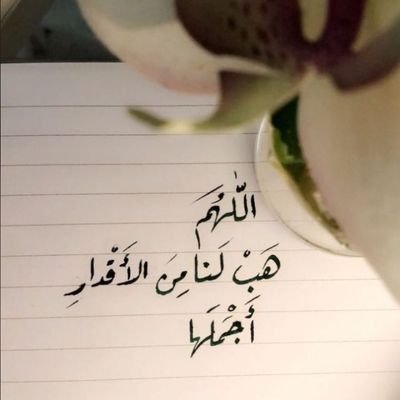 اللّٰهُمَّ
هَبْ لَنا مِنَ الأَقْدارِ
أَجْمَلَها